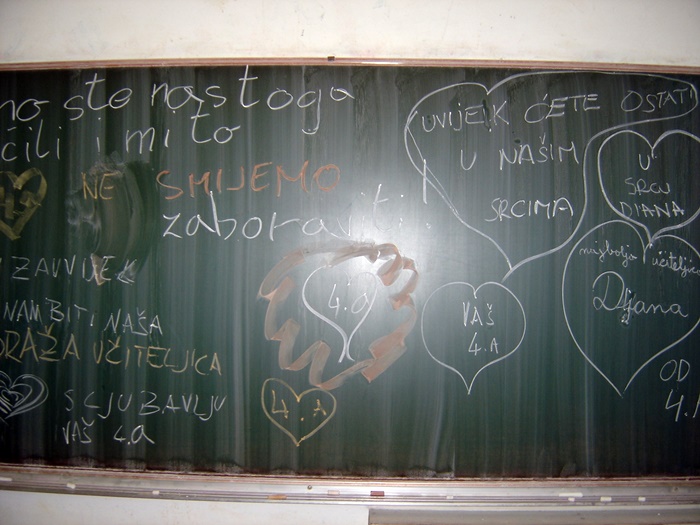 no ste nas toga
čili i mi to
NE SMIJEMO
zaboraviti!
ZAUVIJEK
NAM BITI NAŠA
DRAŽA UČITELJICA
S LJUBAVLJU
VAŠ 4.a
4.a
4.A
UVIJEK ĆETE OSTATI
U NAŠIM
SRCIMA
VAŠ
4.A
U
SRCU
DIANA
najbolja učiteljic
Dijana
OD
4.